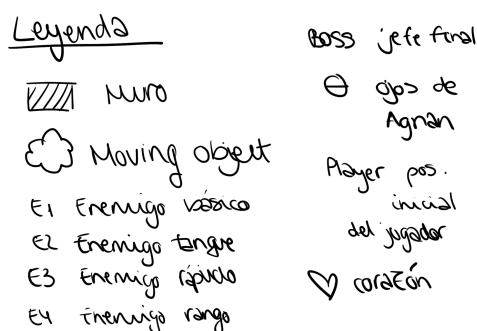 Leyenda
Muro
Moving object
E1 Enemigo básico
E2 Enemigo tanque
E3 Enemigo rápido
E4 Enemigo rango
BOSS jefe final
ojos de
Agnan
Player pos.
inicial
del jugador
corazón